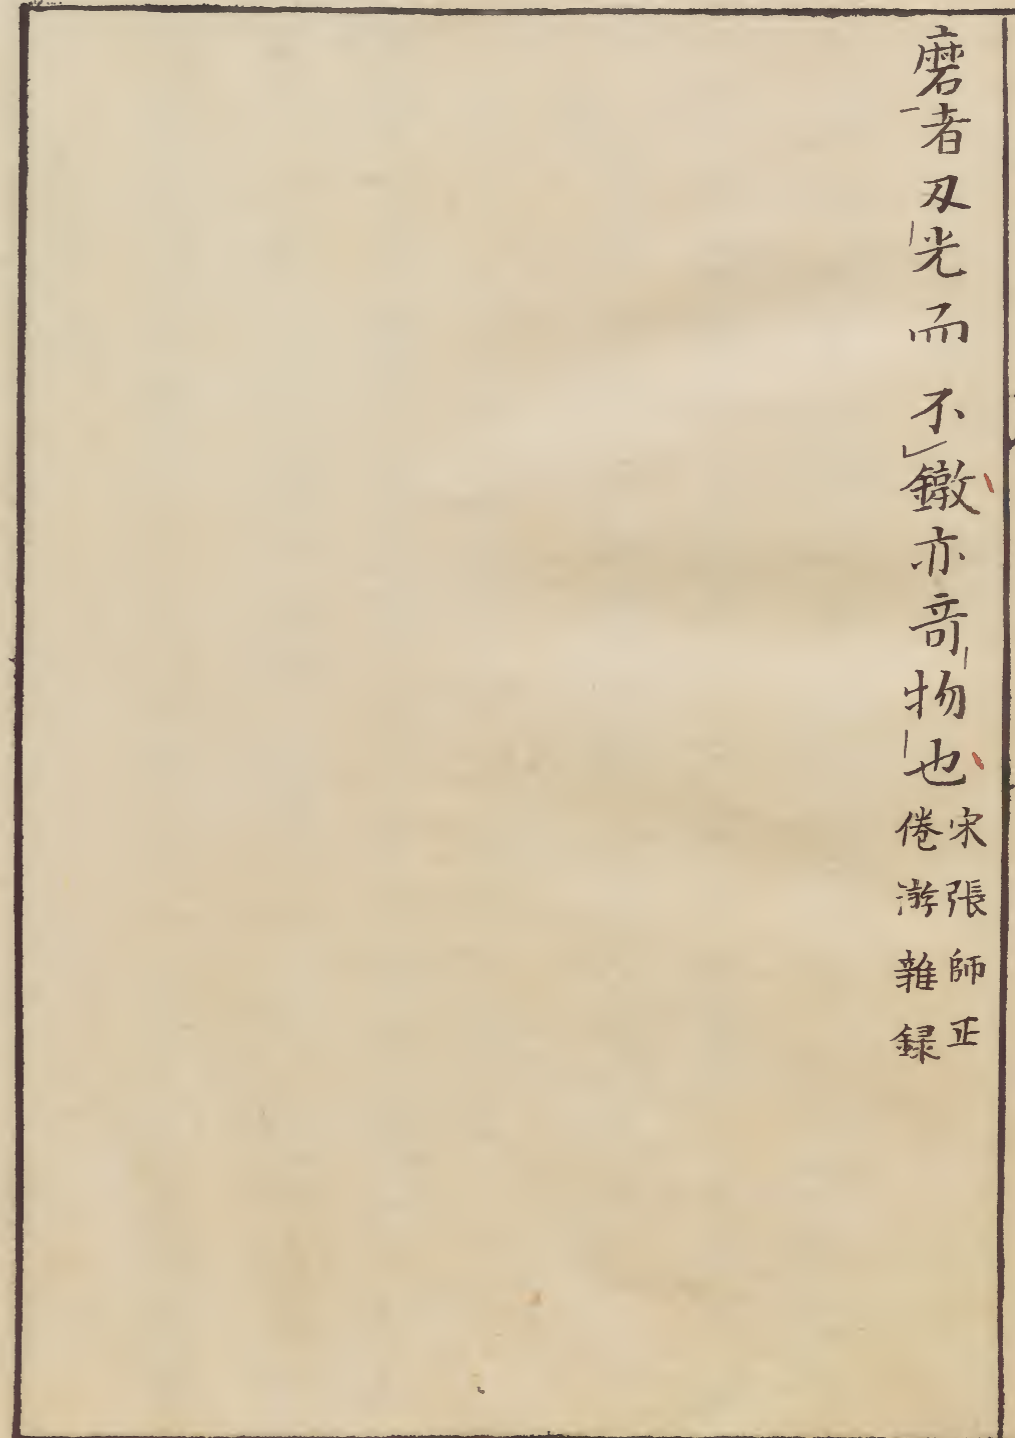 磨者刄光而不鐓亦竒物也
宋張師正
倦游雜録